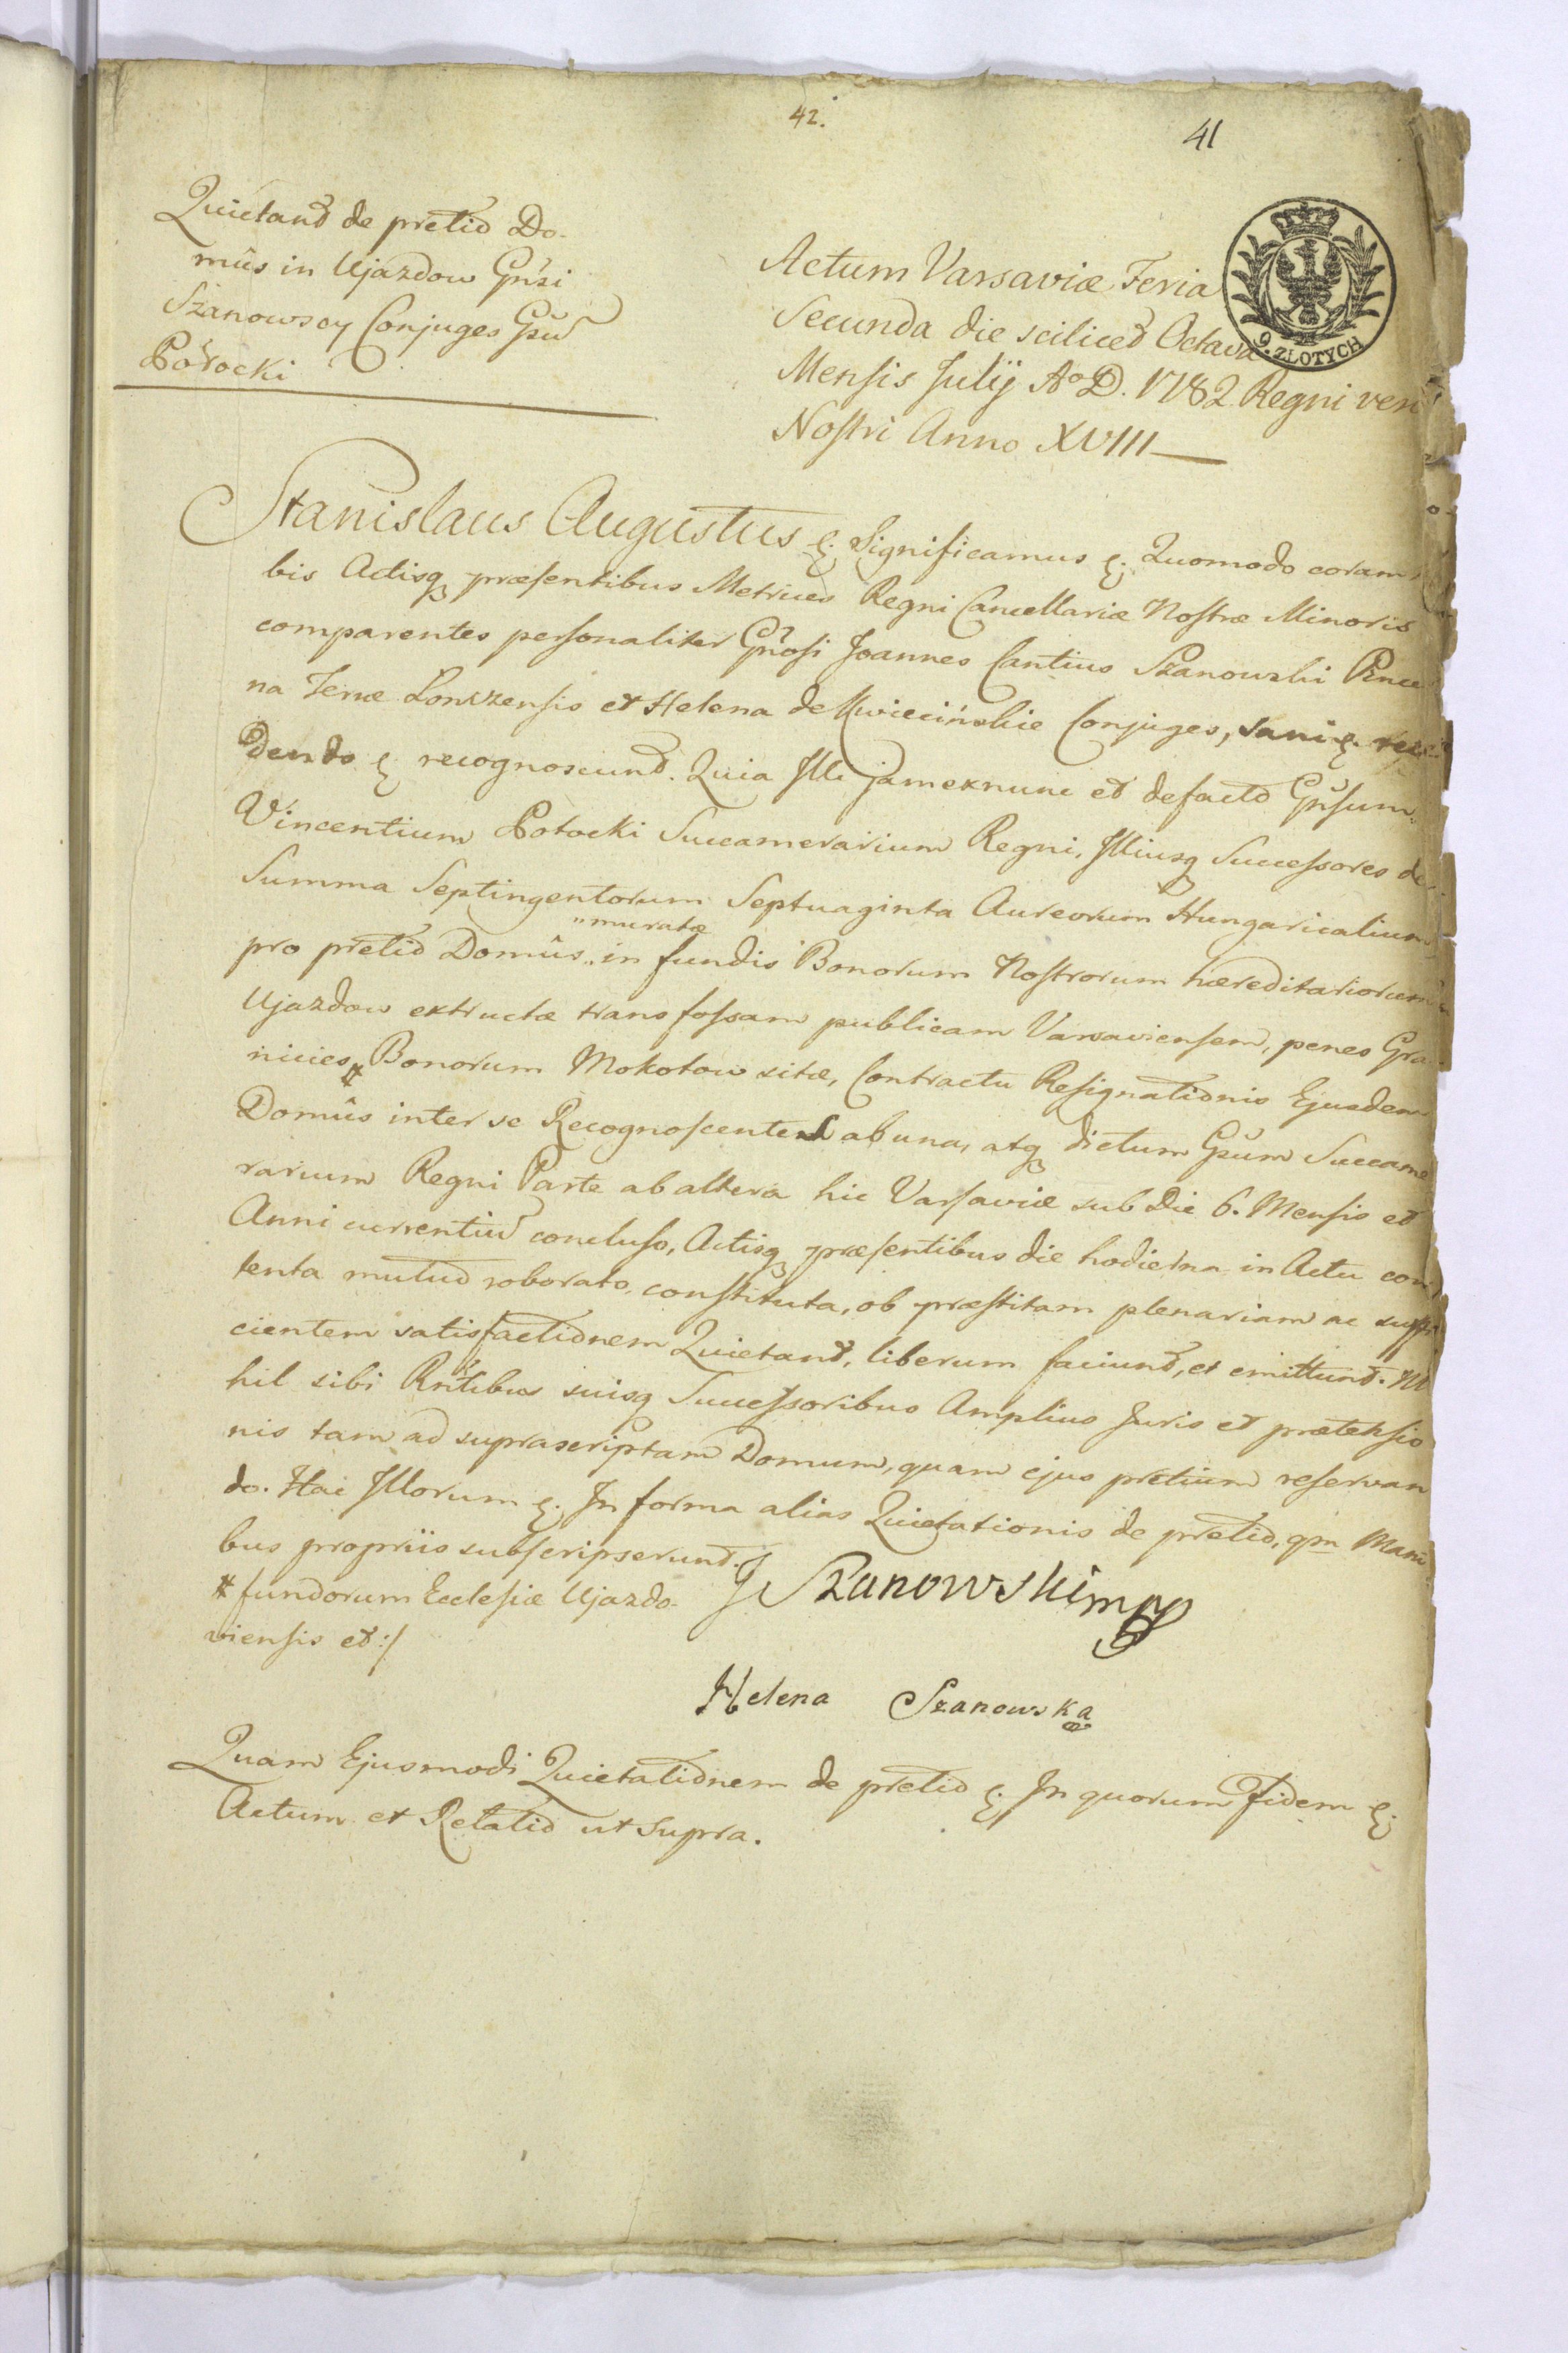 42.
41
Quietant de pretio Do-
mûs in Ujazdow Gnsi
Szanowscy Conjuges Gsu
Potocki
9. ZŁOTYCH
Actum Varsaviæ Feria
Secunda die scilicet Octava
Mensis Julij Aº D. 1782 Regni vero
Nostri Anno XVIII
Stanislaus Augustus &. Significamus &. Quomodo coram
bis Actisq præsentibus Metrices Regni Cancellariæ Nostræ Minoris
comparentes personaliter Gnosi Joannes Cantius Szanowski Pince
na Terræ Lomzensis et Helena de Kwiecińskie Conjuges, sani &.
dendo &. recognoscunt. Quia Illi jam ex nunc et de facto Gnsum
Vincentium Potocki Succamerarium Regni, Illiusq Successores de
Summa Septingentorum Septuaginta Aureorum Hungaricalium
"muratæ
pro pretio Domûs "in fundis Bonorum Nostrorum hæreditariorum
Ujazdow extructæ trans fossam publicam Varsaviensem, penes Gra
nicies # Bonorum Mokotow sitæ, Contractu Resignationis Ejusdem
Domûs inter se Recognoscentes ab una, atq dictum Gsum Succame
rarium Regni Parte ab altera hic Varsaviæ sub Die 6. Mensis et
Anni currentium concluso, Actisq præsentibus die hodierna in Actu con
tenta mutuo roborato, constituta, ob præstitam plenariam ac suffi
cientem satisfactionem Quietant, liberum faciunt, et emittunt. Ni
hil sibi Rntibus suisq Successoribus Amplius Juris et prætensio
nis tam ad suprascriptam Domum, quam ejus pretium reservan
do. Hac Illorum &. In forma alias Quietationis de pretio, qm Mani
bus propriis subscripserunt.
J Szanowski mp
# fundorum Ecclesiæ Ujazdo-
viensis et :/
Helena Szanowska
Quam Ejusmodi Quietationem de pretio &. In quorum Fidem &.
Actum et Relatio ut supra.